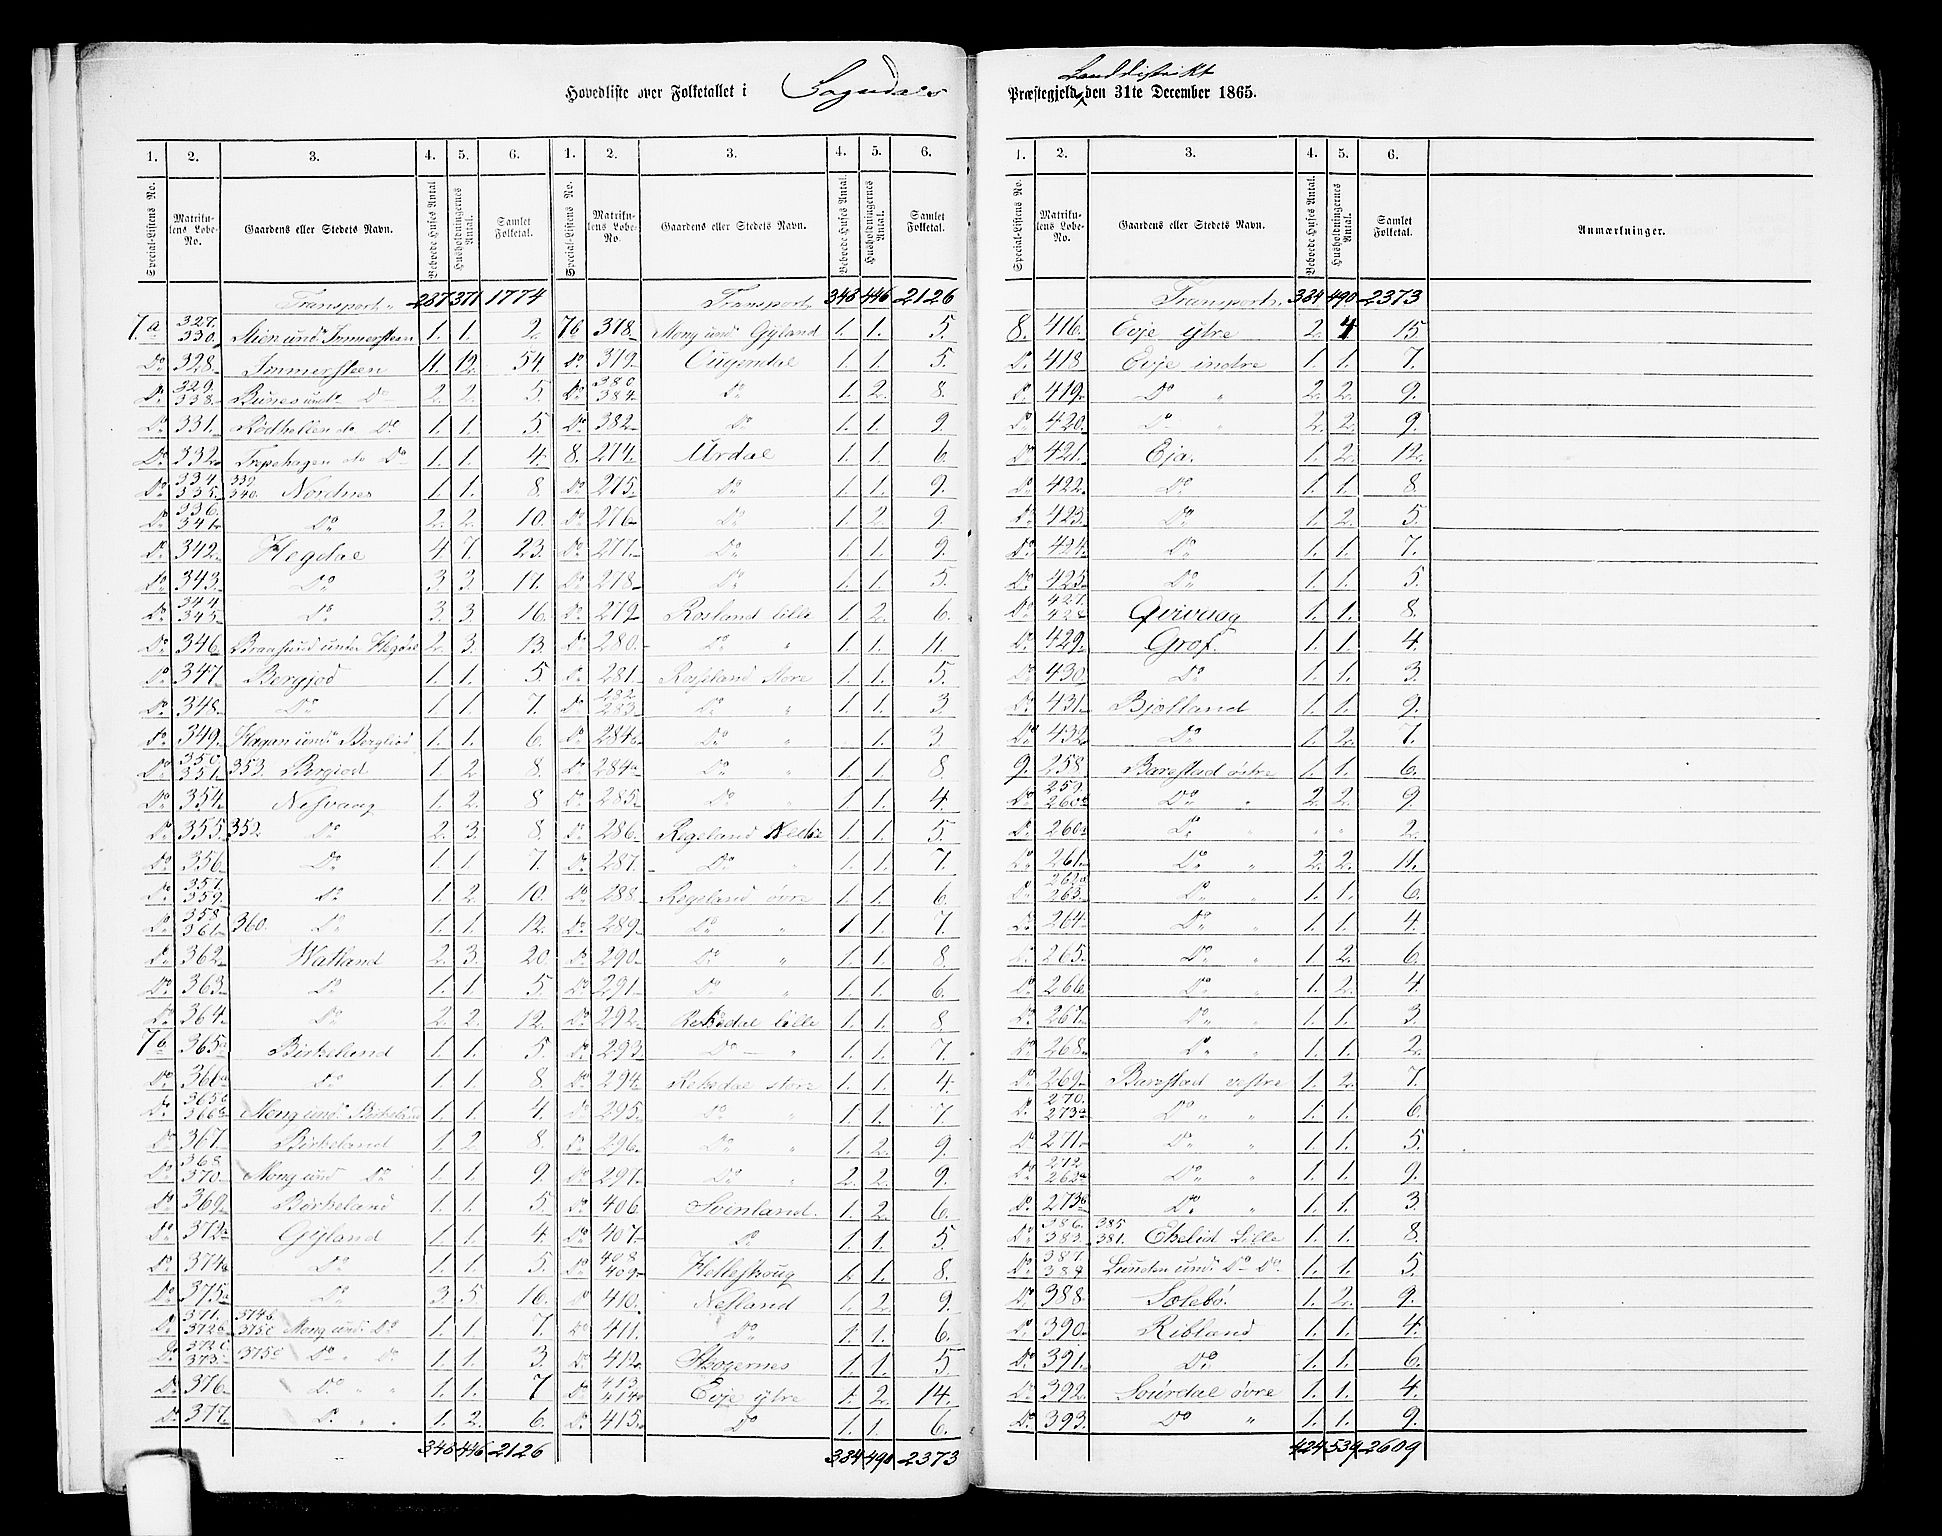 Hovedliste over Folketallet i Sogndals
Landdistrikt
Præstegjeld, den 31te December 1865.
1. 2. 3. 4. 5. 6. 1. 2. 3. 4. 5. 6.
Special-Listens No. Matrikulens Løbe-No. Gaardens eller Stedets Navn. Beboede Huses Antal Husholdningernes Antal. Samlet Folketal. Special-Listens No. Matrikulens Løbe-No. Gaardens eller Stedets Navn. Beboede Huses Antal. Husholdningernes Antal. Samlet Folketal.
Transport 287 371 1774 Transport 348 446 2126
7.a 327. 330. Stien und. Immersteen 1. 1. 2. 7b 378. Mong und. Gyland 1. 1. 5.
Do 328. Immersteen 11. 12. 54. Do 379. Ougendal 1. 1. 5.
Do 329. 338. Bünes und. Do 2. 2. 5. Do 380. 384. Do 1. 2. 8.
Do 331. Rödhellen do Do 1. 1. 5. Do 382. Do 1. 1. 9.
Do 332. Trepehagen do Do 1. 1. 4. 8. 274. Urdal 1. 1. 6.
Do 334. 335. 339 340. Nordnes 1. 1. 8. Do 275. Do 1. 1. 9.
Do 336. 341. Do 2. 2. 10. Do 276. Do 1. 2. 9.
Do 342. Hegdal 4. 7. 23. Do 277. Do 1. 1. 9.
Do 343. Do 3. 3. 17. Do 278. Do 1. 1. 5.
Do 344 345. Do 3. 3. 16. Do 279. Rosland lille 1. 2. 6.
Do 346. Braasund under Hegdal 2. 3. 13. Do 280. Do " 1. 1. 11.
Do 347. Bergjod 1. 1. 5. Do 281. Rosland Store 1. 1. 5.
Do 348. Do 1. 1. 7. Do 282. 283. Do " 1. 1. 3.
Do 349. Hagan und. Bergliod 1. 1. 6. Do 284. Do " . 1. 3.
Do 350. 351. 353. Bergjod 1. 2. 8. Do 284a Do " 1. 1. 8.
Do 354. Nesvaag 1. 2. 8 Do 285. Do " 1. 1. 4.
Do 355. 352 Do 2. 3. 8. Do 286. Regeland Nedre 1. 1. 5.
Do 356. Do 1. 1. 7. Do 287. Do " 1. 1. 7.
Do 357. 359. Do 1. 2. 10. Do 288. Regeland övre 1. 1. 6.
Do 358. 361. 360. Do 1. 1. 12. Do 289. Do " 1 1. 7.
Do 362. Watland 2. 3. 20. Do 290. Do " 1. 1. 8.
Do 363. Do 1. 1. 5. Do 291. Do " 1. 1. 6.
Do 364. Do 2. 2. 12. Do 292. Rekedal lille 1. 1. 8.
7b 365a Birkeland 1. 1. 5. Do 293. Do " 1. 1. 7.
Do 366a Do 1. 1. 8. Do 294. Rekedal store 1. 1. 4.
Do 365c 366b Mong und. Birkeland 1. 1. 4. Do 295. Do " 1. 1. 7.
Do 367. Birkeland 1. 2. 8. Do 296. Do " 1. 2. 9.
Do 368 370. Mong und Do 1. 1. 9. Do 297. Do " 2. 2. 9.
Do 369. Birkeland 1. 1. 5. Do 406. Svinland. 1. 2. 6.
Do 372a Gyland 1. 1. 4. Do 407. Do 1. 1. 5.
Do 374a Do 1. 1. 5. Do 408 409. Helleskoug 1. 1. 8.
Do 375a Do 3. 5. 16. Do 410. Nesland 1. 2. 9.
Do 371. 372b 374b 375c Mong und. Do 1. 1. 7. Do 411. Do 1. 1. 6.
Do 372c 373. 375c Do " Do 1. 1. 3. Do 412. Skogernes 1. 1. 5
Do 376. Do " " 1. 1. 7 Do 413. 414. Evje ytre 1. 2. 14.
Do 377. Do " " 1. 2. 6. Do 415. Do 1. 1. 6.
348 446 2126 384 490 2373
1. 2. 3. 4. 5. 6.
Special-Listens No. Matrikulens Løbe-No. Gaardens eller Stedets Navn. Beboede Huses Antal. Husholdningernes Antal. Samlet Folketal. Anmærkninger.
Transport. 384 490 2373
8. 416. Evje ytre 2. 4 15.
Do 418 Evje indre 1. 1. 7.
Do 419. Do " 2. 2. 9.
Do 420. Do " 2. 2. 9.
Do 421. Eja. 1. 2. 12.
Do 422. Do 1. 1. 8.
Do 423. Do 1. 2. 5.
Do 424. Do 1. 1. 7.
Do 425. Do 1. 1. 5.
Do 427. 428. Qvivaag 1. 1. 8.
Do 429. Grof. 1. 1. 4.
Do 430. Do 1. 1. 3.
Do 431. Bjelland 1. 1. 9.
Do 432. Do 1. 2. 7.
9. 258. Barstad östre 1. 1. 6.
Do 259. 260b Do " 2. 2. 9.
Do 260a Do " " " 2.
Do 261. Do " 2. 2. 11.
Do 262a 263. Do " 1. 1. 6.
Do 264. Do " 1. 1. 4.
Do 265. Do " 1. 2. 6.
Do 266. Do " 1. 2. 4.
Do 267. Do " 1. 1. 3.
Do 268. Do " 1. 1. 2.
Do 269. Barstad vestre 1. 2. 7.
Do 270. 273a Do " " 1. 1. 6.
Do 271. Do " 1. 1. 5.
Do 272. 262a Do " 1. 1. 9.
Do 273b Do " 1. 1. 3.
Do 386. 383. 385 381. Ekelid Lille 1. 1. 8.
Do 387. 389 Lunden und. Do Do. 1. 1. 5.
Do 388. Solebö. 1. 2. 9.
Do 390. Ribland 1. 1. 4.
Do 391. Do 1. 1. 6.
Do 392. Sourdal övre 1. 1. 4.
Do 393. Do " 1. 1. 9.
424 539 2609